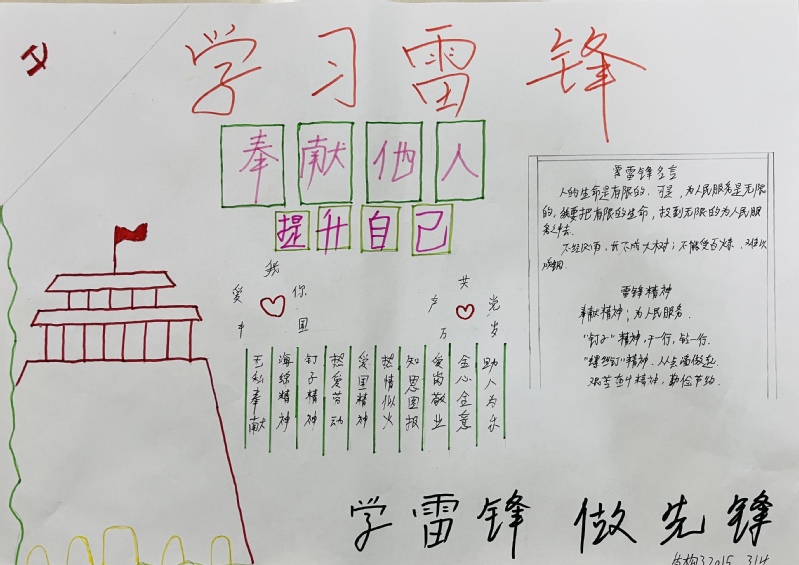 学习雷锋
奉献他人
提升自己
我爱你中国
共产党万岁
无私奉献
海绵精神
钉子精神
热爱劳动
爱国精神
热情似火
知恩图报
爱岗敬业
全心全意
助人为乐
雷锋名言
人的生命是有限的、可是,为人民服务是无限
的,我要把有限的生命,投到无限的为人民服
务之中去。
不经风雨,长不成大树;不能受百炼,
雷锋精神
奉献精神:为人民服务.
"钉子"精神,干一行,钻一行.
"螺丝钉"精神、做起
艰苦奋斗精神,勤俭节约.
学雷锋 做先锋